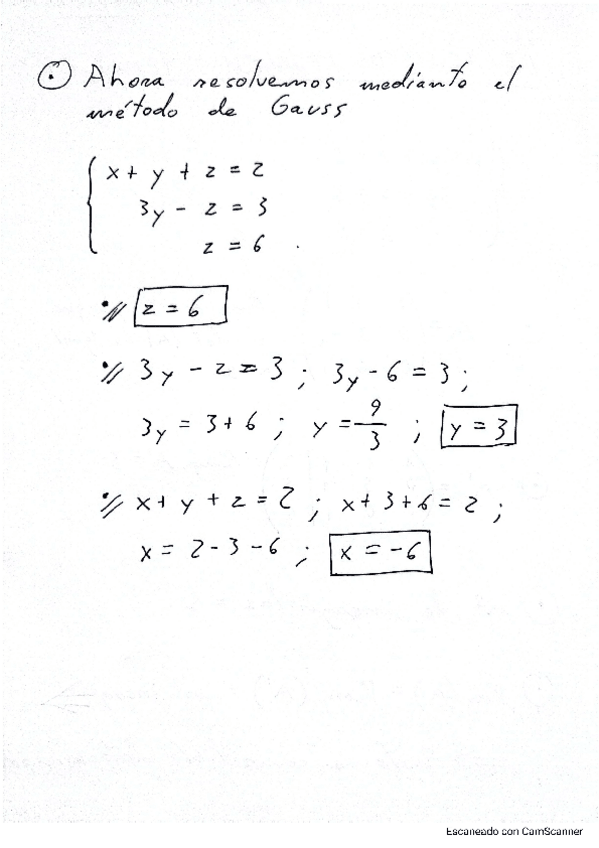 Ahora resolvemos medianto el
método de Gauss
x + y + z = 2
3y - z = 3
z = 6
z = 6
3y - z = 3 ; 3y - 6 = 3 ;
3y = 3 + 6 ; y = 9/3 ; y = 3
x + y + z = 2 ; x + 3 + 6 = 2 ;
x = 2 - 3 - 6 ; x = -6
Escaneado con CamScanner